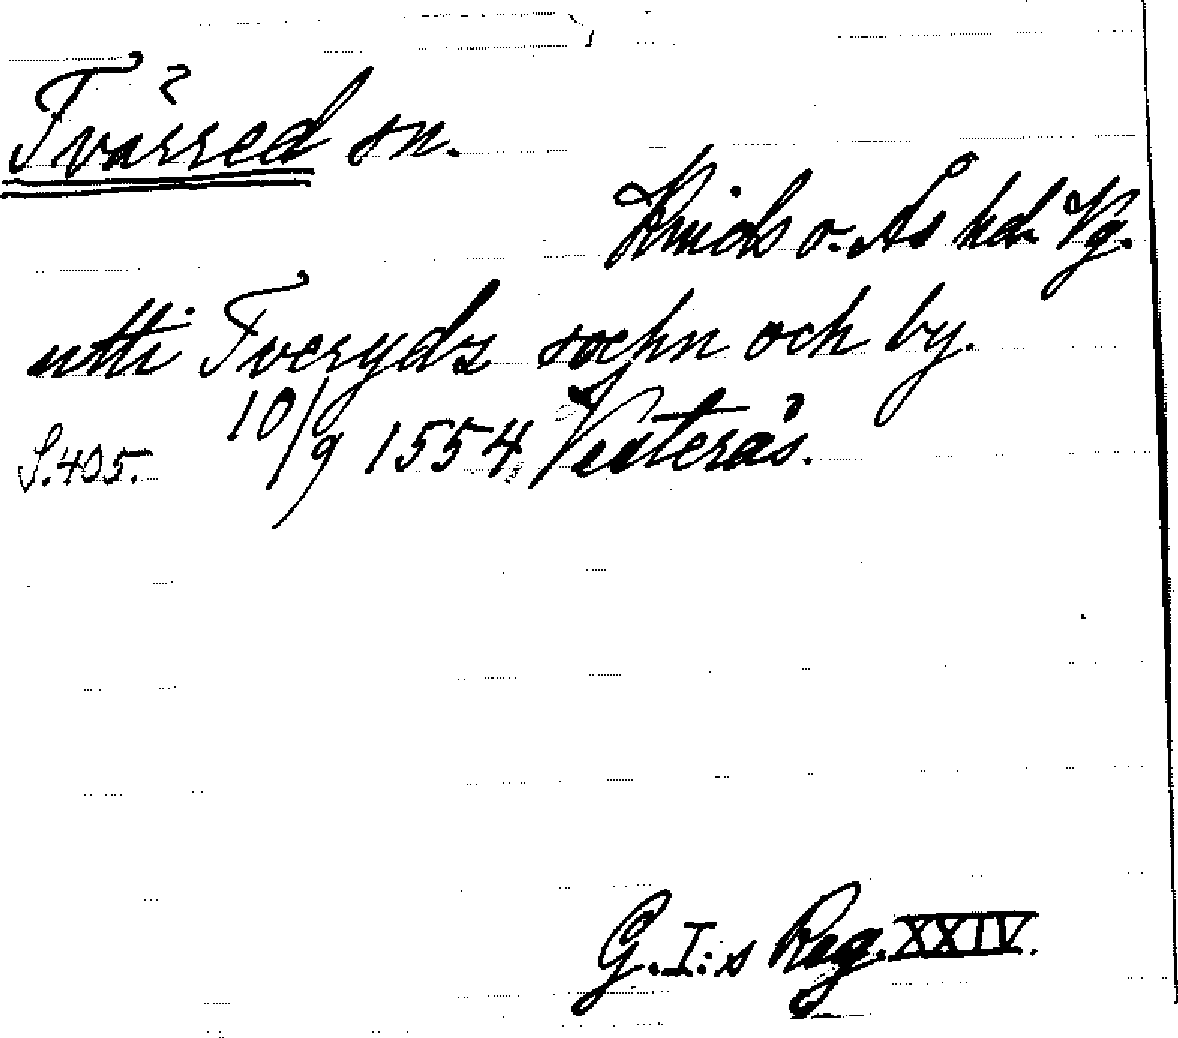 Tvärred sn.
Kinds o. Ås hd. Vg.
utti Tverydz sochn och by.
S. 405. 10/9 1554 Västerås.
G. I:s Reg. XXIV.